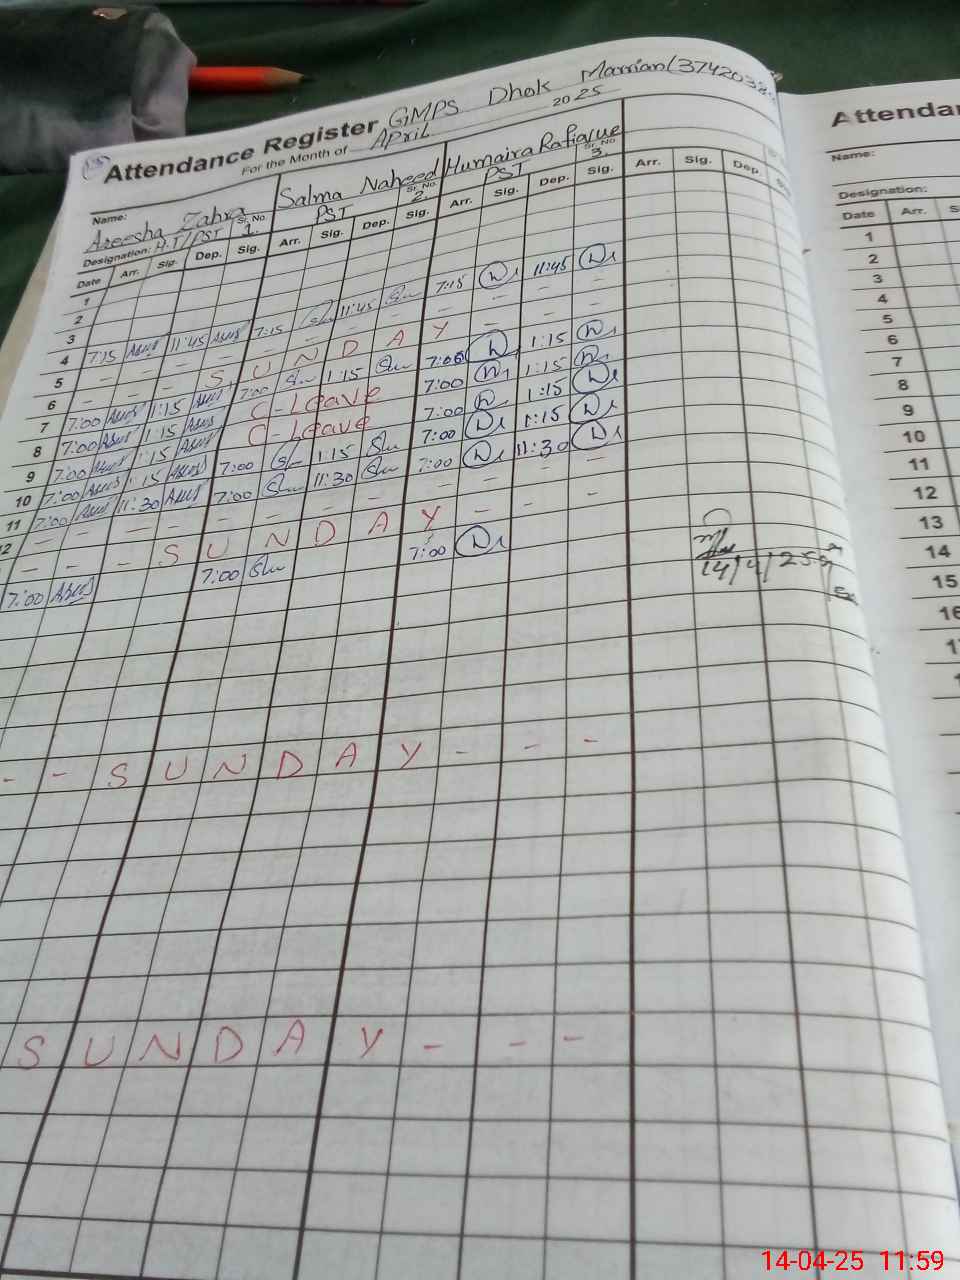 Attendance Register GMPS Dhok Marrian (3742038
For the Month of April 2025
Name: Areesha Zahra Sr. No. 1. Salma Naheed Sr. No. 2. Humaira Rafique Sr. No. 3.
Designation: H.T/PST PST PST
Date Arr. Sig. Dep. Sig. Arr. Sig. Dep. Sig. Arr. Sig. Dep. Sig. Arr. Sig. Dep.
1
2
3
4 7:15 11:45 7:15 11:45 7:15 11:45
5 - - - - - - - - - - - -
6 - - S U N D A Y - - -
7 7:00 1:15 7:00 1:15 7:00 1:15
8 7:00 1:15 C-Leave 7:00 1:15
9 7:00 1:15 C-Leave 7:00 1:15
10 7:00 1:15 7:00 1:15 7:00 1:15
11 7:00 11:30 7:00 11:30 7:00 11:30
12 - - - - - - - - - - -
- - - S U N D A Y - - -
7:00 7:00 7:00
14/4/25
- - S U N D A Y - - -
S U N D A Y - - -
Attendan
Name:
Designation:
Date Arr. S
1
2
3
4
5
6
7
8
9
10
11
12
13
14
15
16
14-04-25 11:59